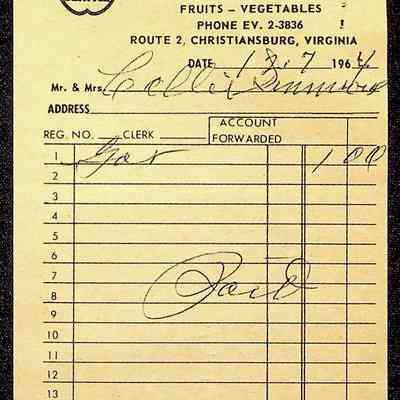 FRUITS – VEGETABLES
PHONE EV. 2-3836
ROUTE 2, CHRISTIANSBURG, VIRGINIA
DATE 1964
Mr. & Mrs. Collie
ADDRESS
REG. NO. CLERK ACCOUNT FORWARDED
1 Gas 1 00
2
3
4
5
6
7 Paid
8
9
10
11
12
13